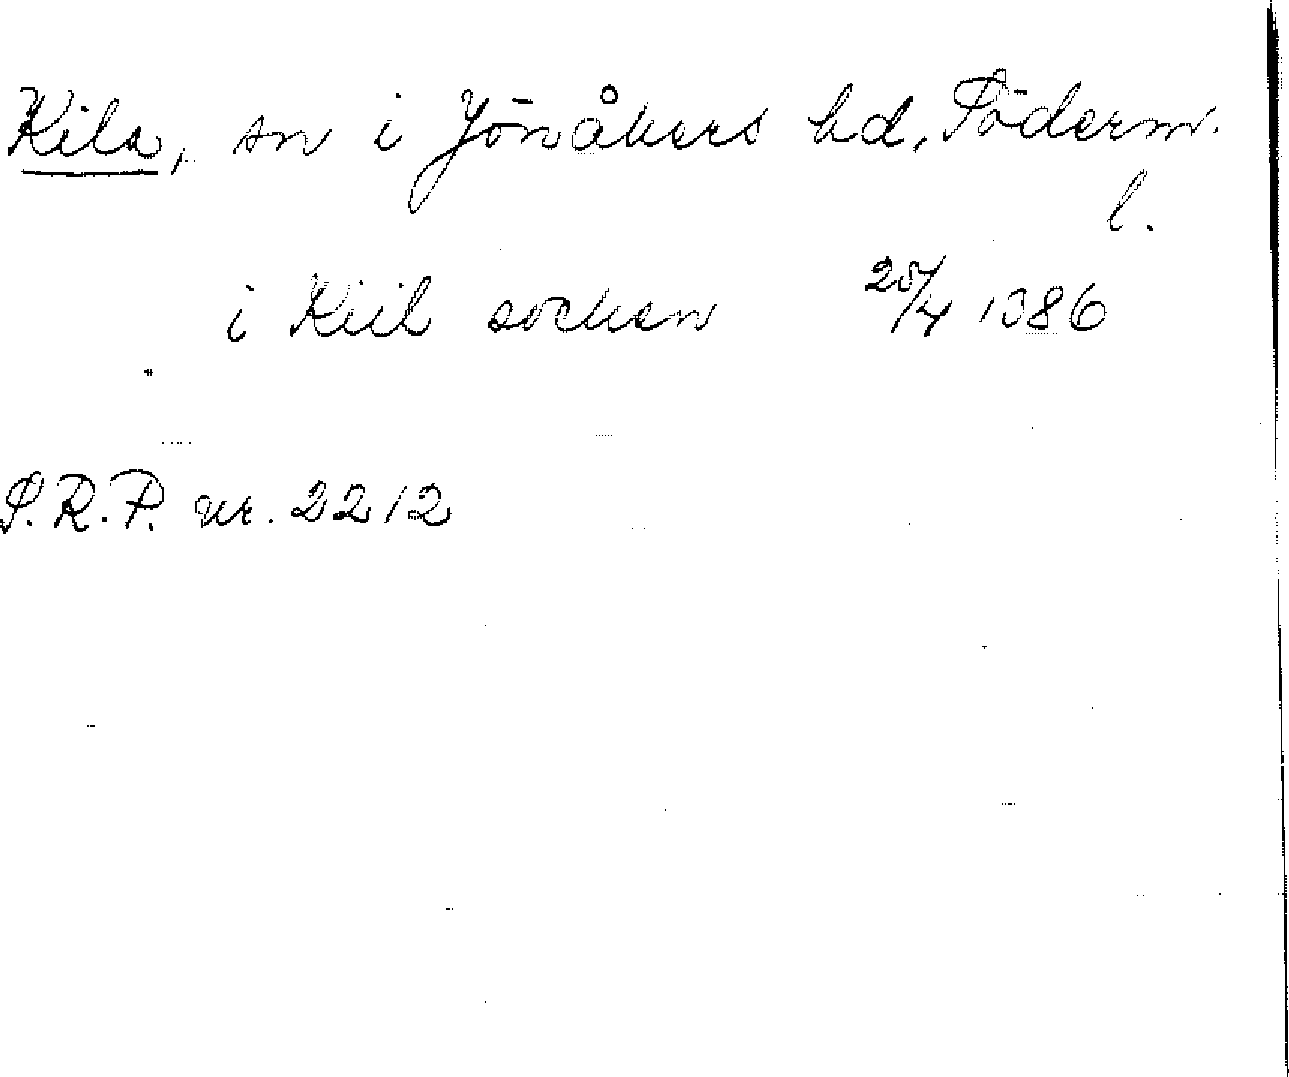 Kila, sn i Jönåkers hd, Söderm.
l.
i Kiil socken 25/4 1386
S.R.P. nr. 2212